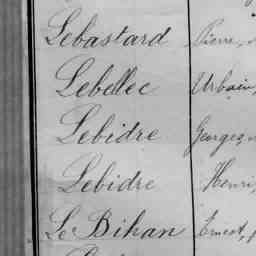 Lebastard Pierre,
Lebellec Urbain,
Lebidre Georges,
Lebidre Henri,
Le Bihan Ernest,